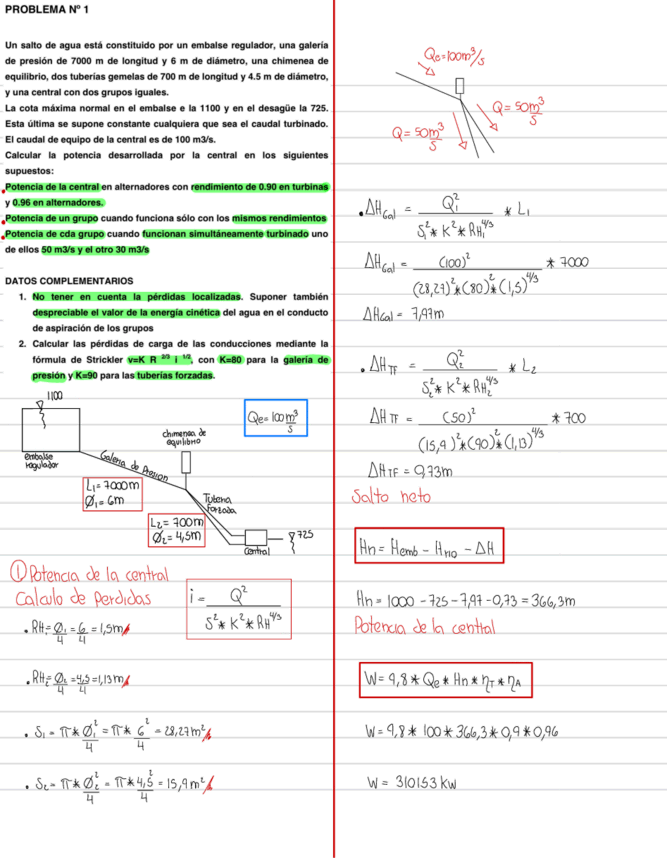 PROBLEMA Nº 1
Un salto de agua está constituido por un embalse regulador, una galería
de presión de 7000 m de longitud y 6 m de diámetro, una chimenea de
equilibrio, dos tuberías gemelas de 700 m de longitud y 4.5 m de diámetro,
y una central con dos grupos iguales.
La cota máxima normal en el embalse e la 1100 y en el desagüe la 725.
Esta última se supone constante cualquiera que sea el caudal turbinado.
El caudal de equipo de la central es de 100 m3/s.
Calcular la potencia desarrollada por la central en los siguientes
supuestos:
Potencia de la central en alternadores con rendimiento de 0.90 en turbinas
y 0.96 en alternadores.
Potencia de un grupo cuando funciona sólo con los mismos rendimientos
Potencia de cda grupo cuando funcionan simultáneamente turbinado uno
de ellos 50 m3/s y el otro 30 m3/s
DATOS COMPLEMENTARIOS
1. No tener en cuenta la pérdidas localizadas. Suponer también
despreciable el valor de la energía cinética del agua en el conducto
de aspiración de los grupos
2. Calcular las pérdidas de carga de las conducciones mediante la
fórmula de Strickler v=K R 2/3 i 1/2, con K=80 para la galería de
presión y K=90 para las tuberías forzadas.
1100
Qe=100m³/s
chimenea de
equilibrio
embalse
regulador
Galeria de Presion
L₁=7000m
Ø₁=6m
Tuberia
Forzada
L₂=700m
Ø₂=4,5m
725
Central
① Potencia de la central
Calculo de perdidas
i = Q² / S² * K² * RH^4/3
• RH₁=Ø₁/4=6/4=1,5m
• RH₂=Ø₂/4=4,5/4=1,13m
• S₁= π*Ø₁²/4=π*6²/4=28,27m²
• S₂= π*Ø₂²/4=π*4,5²/4=15,9m²
Qe=100m³/s
Q=50m³/s
Q=50m³/s
• ΔHGal = Q₁² / S₁² * K² * RH₁^4/3 * L₁
ΔHGal = (100)² / (28,27)²*(80)²*(1,5)^4/3 * 7000
ΔHGal = 7,97m
• ΔHTF = Q₂² / S₂² * K² * RH₂^4/3 * L₂
ΔHTF = (50)² / (15,9)²*(90)²*(1,13)^4/3 * 700
ΔHTF = 0,73m
Salto neto
Hn = Hemb - Hrio - ΔH
Hn = 1000 - 725 - 7,97 - 0,73 = 366,3m
Potencia de la central
W = 9,8 * Qe * Hn * ηT * ηA
W = 9,8 * 100 * 366,3 * 0,9 * 0,96
W = 310153 kw